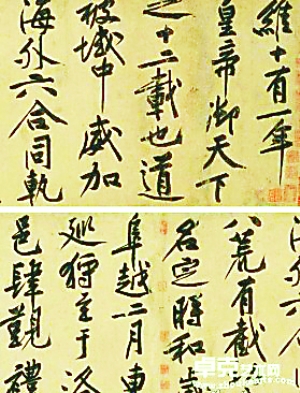 維十有一年
皇帝御天下
之十二載也道
被域中威加
海外六合同軌
八荒有截
名定時和
阜越二月東
巡狩至于洛
邑肆覲禮
卓克艺术网